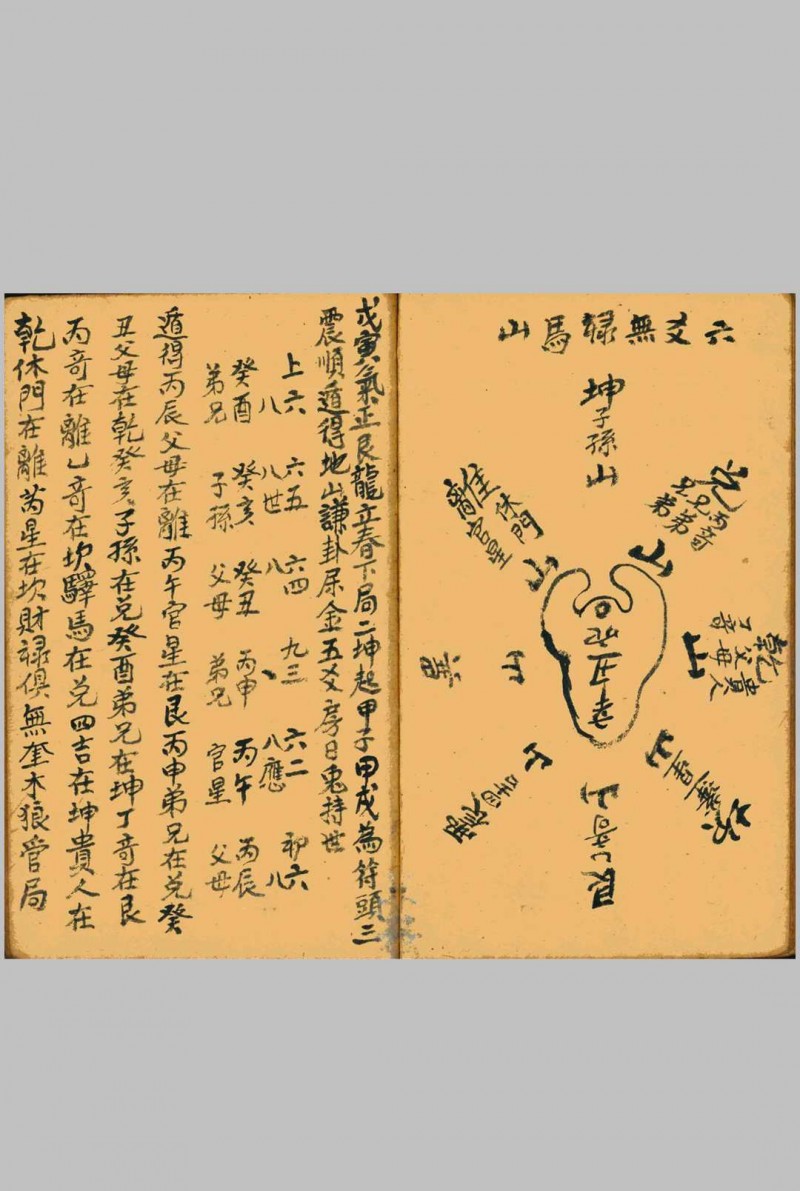 六爻無祿馬山
坤子孫山
丙奇
山
乾
貴人
父母
丁奇
山
山
艮乙奇山
山
山
離
休門
官星
山
辛丑
戊寅氣正艮龍立春下局二坤起甲子甲戌為符頭三
震順遁得地山謙卦屬金五爻房日兎持世
上六 六五 六四 九三 六二 初六
八 八世 八 、 八應 八
癸酉 癸亥 癸丑 丙申 丙午 丙辰
弟兄 子孫 父母 弟兄 官星 父母
遁得丙辰父母在離丙午官星在艮丙申弟兄在兌癸
丑父母在乾癸亥子孫在兌癸酉弟兄在坤丁奇在艮
丙奇在離乙奇在坎驛馬在兌四吉在坤貴人在
乾休門在離芮星在坎財祿俱無奎木狼管局